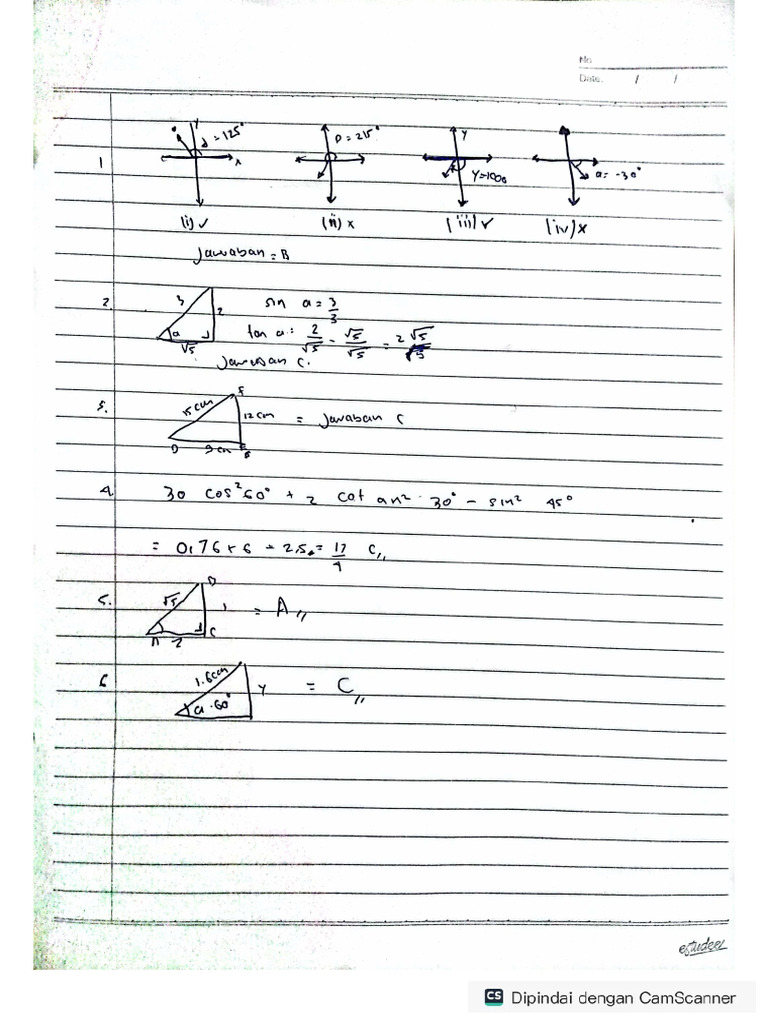 No
Date. / /
1 Y α = 125° x β = 215° Y γ = 1000 a = -30°
(i) ✓ (ii) x (iii) ✓ (iv) x
Jawaban = B
2. 3 2 a √5 sin a = 3/3
tan a : 2/√5 - √5/√5 = 2√5/√5
Jawaban C.
3. 15 cm 12 cm D 9 cm = Jawaban C
4. 30 cos² 60° + 2 cot an² . 30° - sin² 45°
= 0,76 + 6 - 2.5 = 17/4 C,,
5. √5 1 A 2 C = A,,
6 1.6cm Y a . 60° = C,,
estudee
CS Dipindai dengan CamScanner